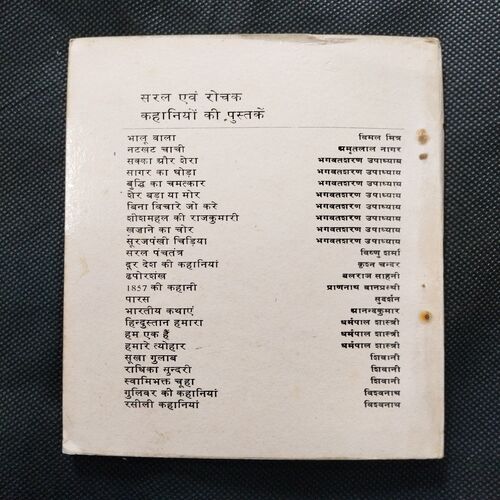 सरल एवं रोचक
कहानियों की पुस्तकें
भालू वाला विमल मित्र
नटखट चाची अमृतलाल नागर
सक्का और शेरा भगवतशरण उपाध्याय
सागर का घोड़ा भगवतशरण उपाध्याय
बुद्धि का चमत्कार भगवतशरण उपाध्याय
शेर बड़ा या मोर भगवतशरण उपाध्याय
बिना विचारे जो करे भगवतशरण उपाध्याय
शीशमहल की राजकुमारी भगवतशरण उपाध्याय
खज़ाने का चोर भगवतशरण उपाध्याय
सूरजपंखी चिड़िया भगवतशरण उपाध्याय
सरल पंचतंत्र विष्णु शर्मा
दूर देश की कहानियां कृश्न चन्दर
ढपोरशंख बलराज साहनी
1857 की कहानी प्राणनाथ वानप्रस्थी
पारस सुदर्शन
भारतीय कथाएं आनन्दकुमार
हिन्दुस्तान हमारा धर्मपाल शास्त्री
हम एक हैं धर्मपाल शास्त्री
हमारे त्योहार धर्मपाल शास्त्री
सूखा गुलाब शिवानी
राधिका सुन्दरी शिवानी
स्वामिभक्त चूहा शिवानी
गुलिवर की कहानियां विश्वनाथ
रसीली कहानियां विश्वनाथ